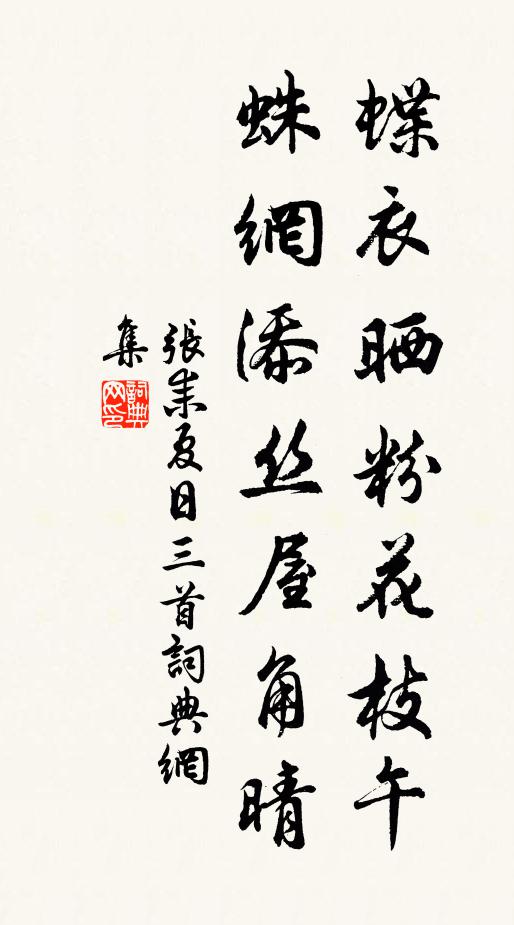 蝶衣晒粉花枝午
蛛網添丝屋角晴
張耒夏日三首詞典網
集
詞典网印